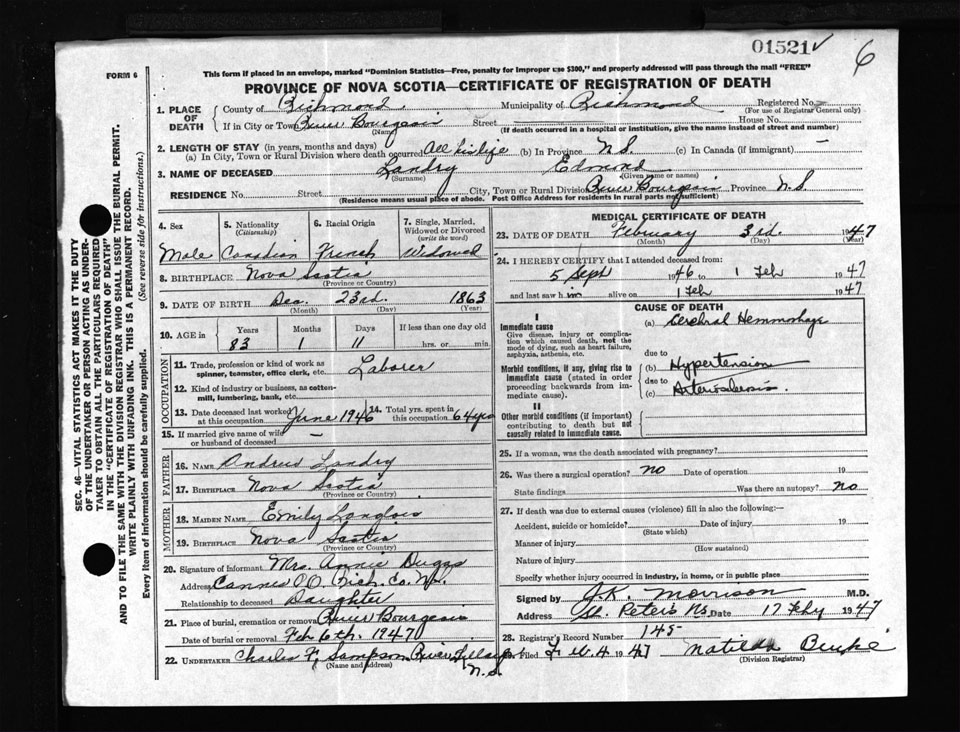 01521✓
6
FORM 6
This form if placed in an envelope, marked "Dominion Statistics—Free, penalty for improper use $300," and properly addressed will pass through the mail "FREE"
PROVINCE OF NOVA SCOTIA—CERTIFICATE OF REGISTRATION OF DEATH
1. PLACE OF DEATH County of Richmond Municipality of Richmond Registered No.
(For use of Registrar General only)
If in City or Town River Bourgeois Street House No.
(Name) (If death occurred in a hospital or institution, give the name instead of street and number)
2. LENGTH OF STAY (in years, months and days)
(a) In City, Town or Rural Division where death occurred All his life (b) In Province N.S. (c) In Canada (if immigrant) —
3. NAME OF DECEASED Landry Edmond
(Surname) (Given name or names)
RESIDENCE No. Street City, Town or Rural Division River Bourgeois Province N.S.
(Residence means usual place of abode. Post Office Address for residents in rural parts not sufficient)
4. Sex 5. Nationality (Citizenship) 6. Racial Origin 7. Single, Married, Widowed or Divorced (write the word)
Male Canadian French Widowed
8. BIRTHPLACE Nova Scotia
(Province or Country)
9. DATE OF BIRTH Dec. 23rd. 1863
(Month) (Day) (Year)
10. AGE in Years Months Days If less than one day old
83 1 11 hrs. or min.
OCCUPATION
11. Trade, profession or kind of work as spinner, teamster, office clerk, etc. Laborer
12. Kind of industry or business, as cotten-mill, lumbering, bank, etc.
13. Date deceased last worked at this occupation June 1946 14. Total yrs. spent in this occupation 64 yrs
15. If married give name of wife or husband of deceased —
FATHER
16. NAME Andrew Landry
17. BIRTHPLACE Nova Scotia
(Province or Country)
MOTHER
18. MAIDEN NAME Emily Langlois
19. BIRTHPLACE Nova Scotia
(Province or Country)
20. Signature of informant Mrs. Annie Duggs
Address Cannes P.O. Rich. Co. N.S.
Relationship to deceased Daughter
21. Place of burial, cremation or removal River Bourgeois
Date of burial or removal Feb 6th. 1947
22. UNDERTAKER Charles F. Sampson River
(Name and Address)
N.S.
MEDICAL CERTIFICATE OF DEATH
23. DATE OF DEATH February 3rd. 1947
(Month) (Day) (Year)
24. I HEREBY CERTIFY that I attended deceased from:
5 Sept 1946 to 1 Feb 1947
and last saw him alive on 1 Feb 1947
CAUSE OF DEATH
I
Immediate cause
Give disease, injury or complication which caused death, not the mode of dying, such as heart failure, asphyxia, asthenia, etc.
(a) Cerebral Hemmorhage
due to
Morbid conditions, if any, giving rise to immediate cause (stated in order proceeding backwards from immediate cause).
(b) Hypertension
due to
(c) Arteriosclerosis.
II
Other morbid conditions (if important) contributing to death but not causally related to immediate cause.
25. If a woman, was the death associated with pregnancy?
26. Was there a surgical operation? no Date of operation 19
State findings Was there an autopsy? no
27. If death was due to external causes (violence) fill in also the following:—
Accident, suicide or homicide? Date of injury 19
(State which)
Manner of injury
(How sustained)
Nature of injury
Specify whether injury occurred in industry, in home, or in public place
Signed by J.K. Morrison M.D.
Address St. Peters NS Date 17 Feby 1947
28. Registrar's Record Number 145
Filed 1947 Matilda Burke
(Division Registrar)
SEC. 46—VITAL STATISTICS ACT MAKES IT THE DUTY
OF THE UNDERTAKER OR PERSON ACTING AS UNDERTAKER TO OBTAIN ALL THE PARTICULARS REQUIRED
IN THE "CERTIFICATE OF REGISTRATION OF DEATH"
AND TO FILE THE SAME WITH THE DIVISION REGISTRAR WHO SHALL ISSUE THE BURIAL PERMIT.
WRITE PLAINLY WITH UNFADING INK. THIS IS A PERMANENT RECORD.
Every item of information should be carefully supplied. (See reverse side for instructions.)